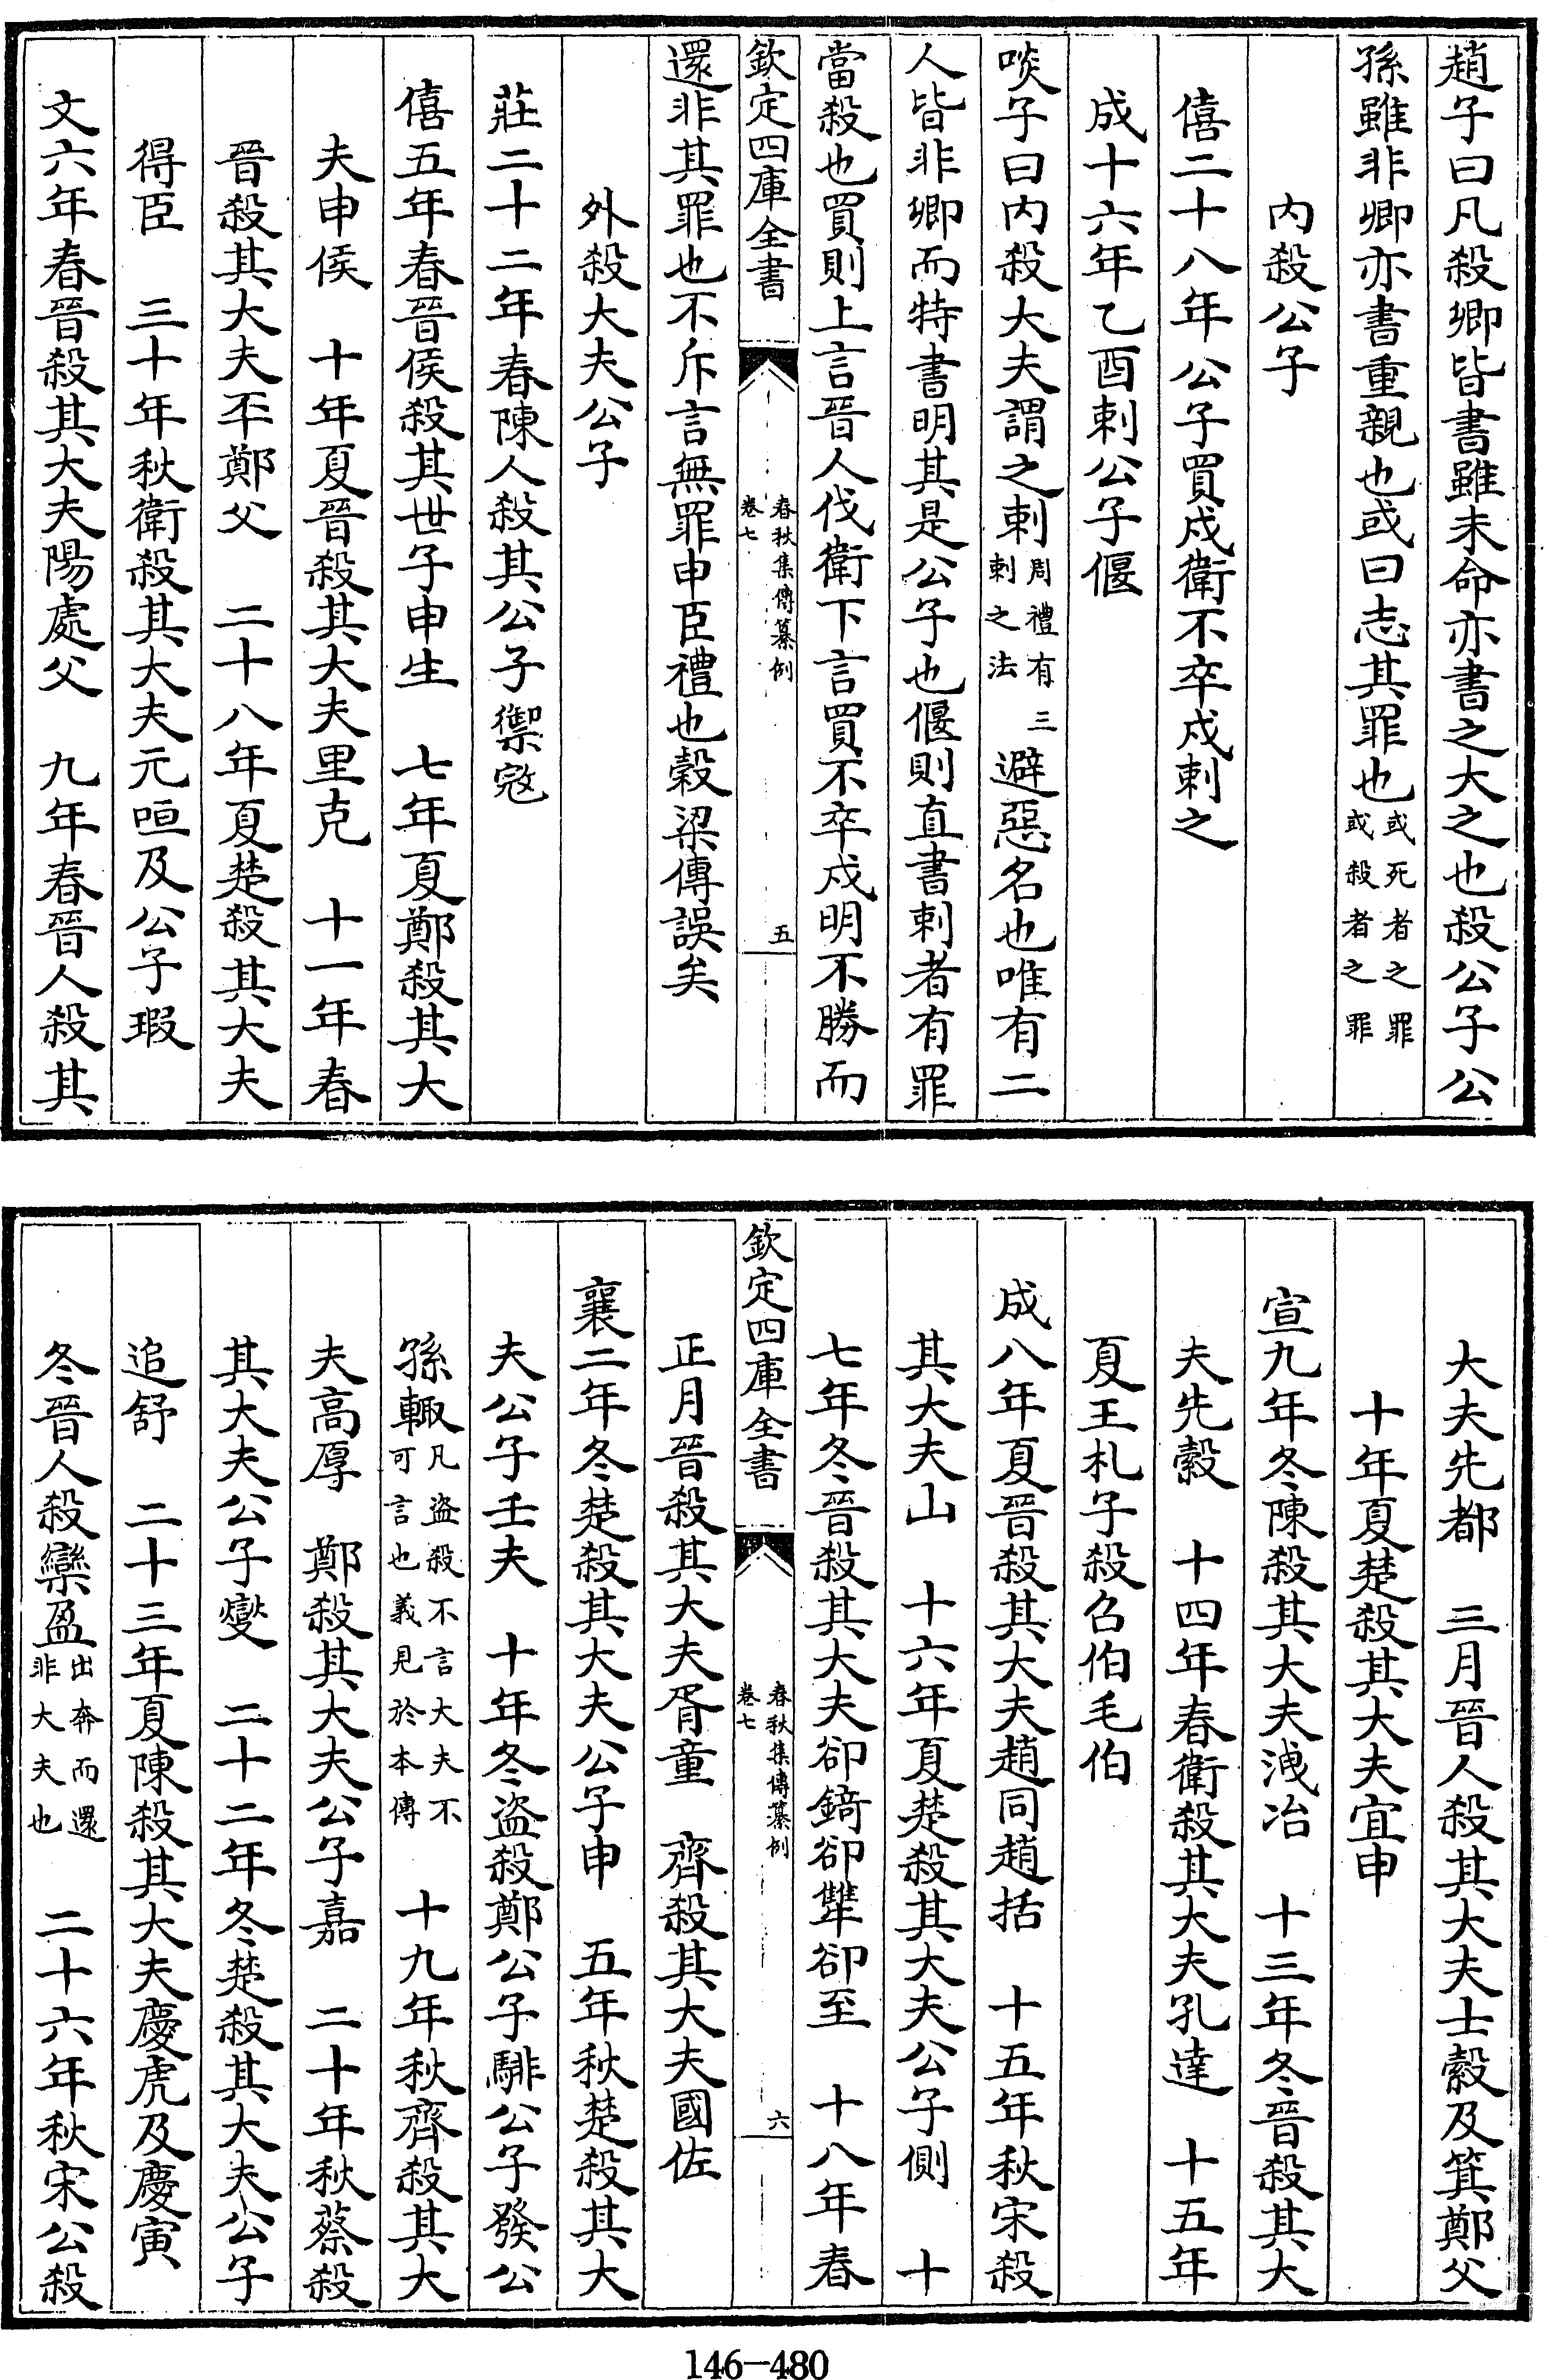 趙子曰凡殺卿皆書雖未命亦書之大之也殺公子公
孫雖非卿亦書重親也或曰志其罪也或死者之罪或殺者之罪
内殺公子
僖二十八年公子買戍衛不卒戍刺之
成十六年乙酉刺公子偃
啖子曰内殺大夫謂之刺周禮有三刺之法避惡名也唯有二
人皆非卿而特書明其是公子也偃則直書刺者有罪
當殺也買則上言晉人伐衛下言買不卒戍明不勝而
欽定四庫全書
春秋集傳纂例
卷七
五
還非其罪也不斥言無罪申臣禮也穀梁傳誤矣
外殺大夫公子
莊二十二年春陳人殺其公子禦寇
僖五年春晉侯殺其世子申生　七年夏鄭殺其大
夫申侯　十年夏晉殺其大夫里克　十一年春
晉殺其大夫丕鄭父　二十八年夏楚殺其大夫
得臣　三十年秋衛殺其大夫元咺及公子瑕
文六年春晉殺其大夫陽處父　九年春晉人殺其
大夫先都　三月晉人殺其大夫士縠及箕鄭父
十年夏楚殺其大夫宜申
宣九年冬陳殺其大夫洩冶　十三年冬晉殺其大
夫先縠　十四年春衛殺其大夫孔達　十五年
夏王札子殺召伯毛伯
成八年夏晉殺其大夫趙同趙括　十五年秋宋殺
其大夫山　十六年夏楚殺其大夫公子側　十
七年冬晉殺其大夫卻錡卻犨卻至　十八年春
欽定四庫全書
春秋集傳纂例
卷七
六
正月晉殺其大夫胥童　齊殺其大夫國佐
襄二年冬楚殺其大夫公子申　五年秋楚殺其大
夫公子壬夫　十年冬盜殺鄭公子騑公子發公
孫輒凡盜殺不言大夫不可言也義見於本傳　十九年秋齊殺其大
夫高厚　鄭殺其大夫公子嘉　二十年秋蔡殺
其大夫公子燮　二十二年冬楚殺其大夫公子
追舒　二十三年夏陳殺其大夫慶虎及慶寅
冬晉人殺欒盈出奔而還非大夫也　二十六年秋宋公殺
146-480